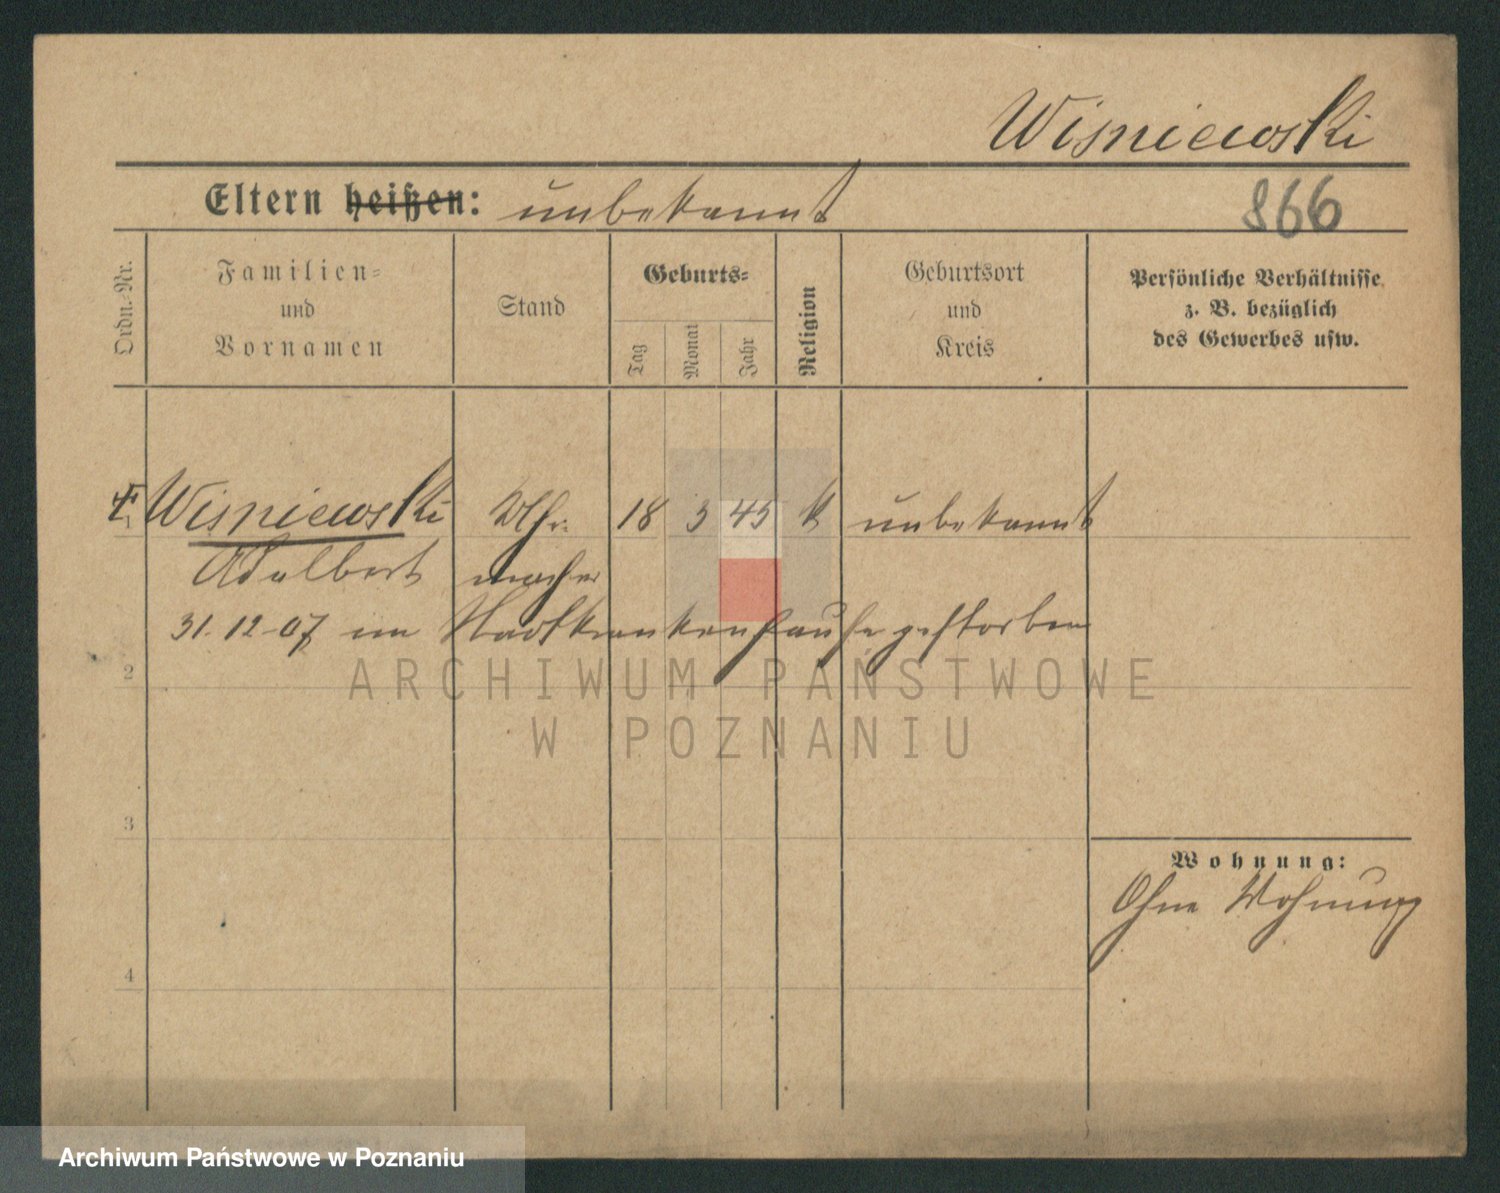 Wisniewski
Eltern heißen: unbekannt
866
Ordn.-Nr.
Familien-
und
Vornamen
Stand
Geburts-
Tag
Monat
Jahr
Religion
Geburtsort
und
Kreis
Persönliche Verhältnisse
z. B. bezüglich
des Gewerbes usw.
1 Wisniewski Uhr- 18 3 45 k unbekannt
Adalbert macher
31.12.07 im Stadtkrankenhause gestorben
2
ARCHIWUM PAŃSTWOWE
W POZNANIU
3
Wohnung:
Ohne Wohnung
4
Archiwum Państwowe w Poznaniu